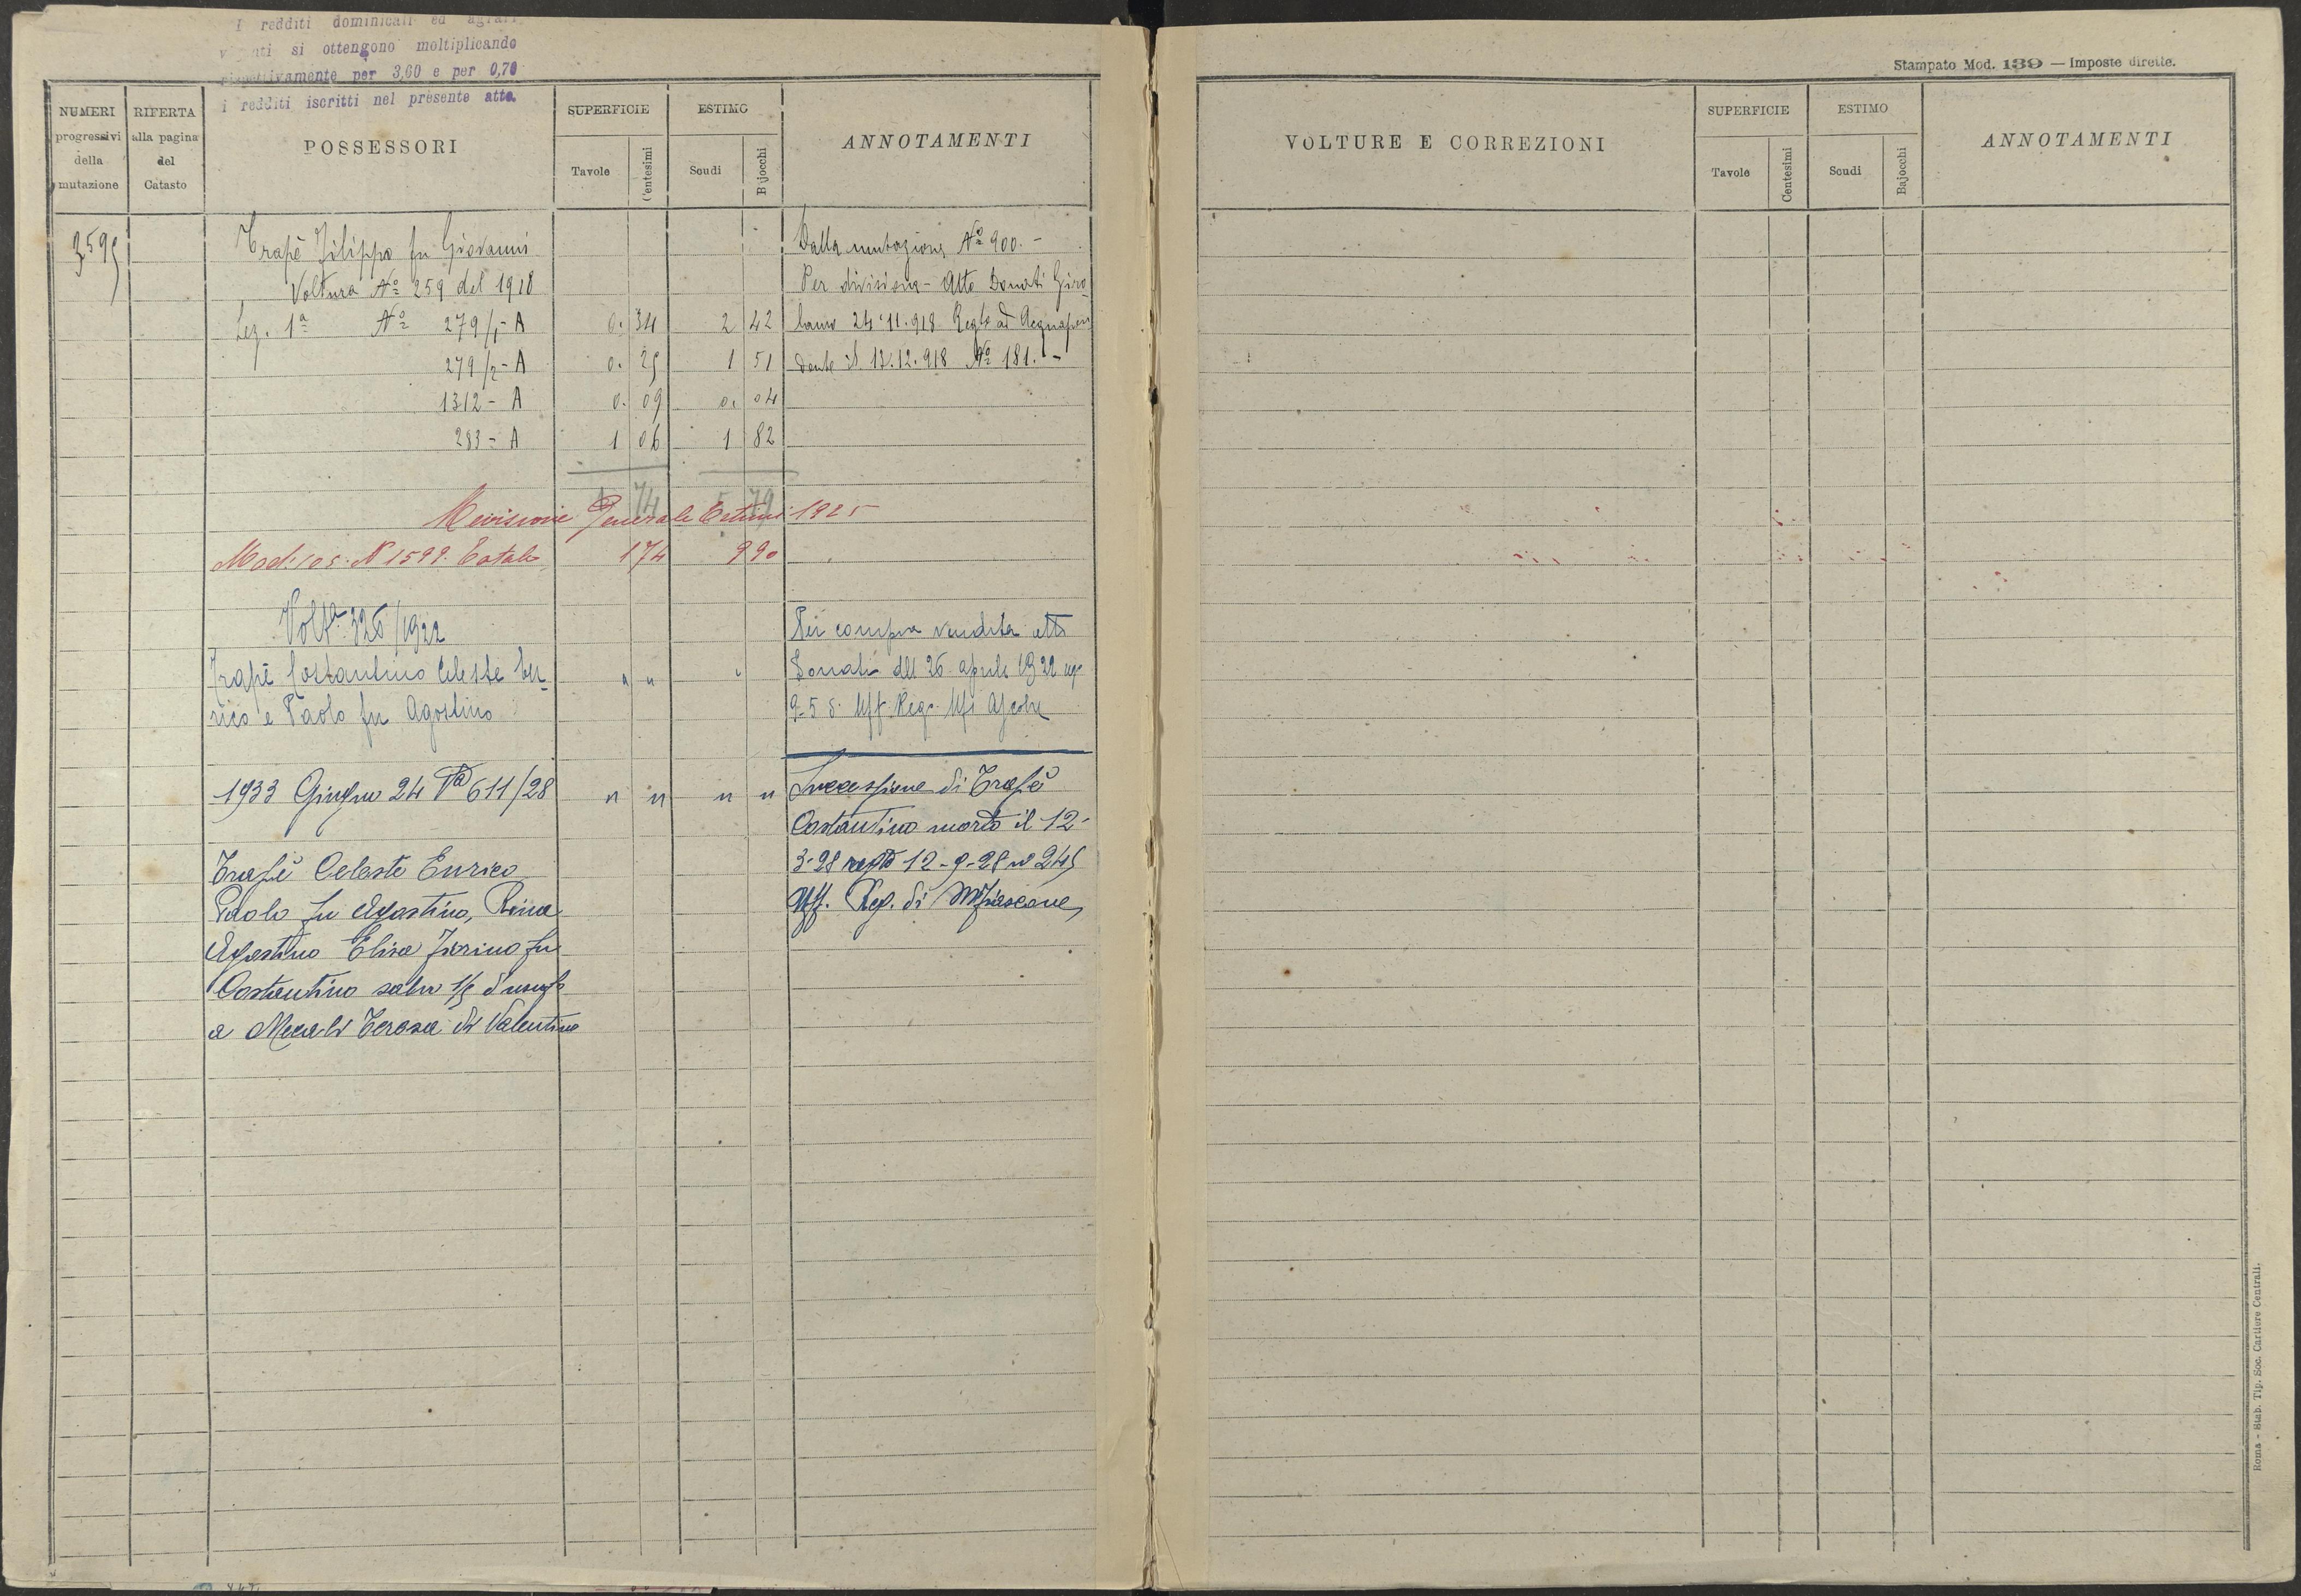 I redditi dominicali ed agrari
si ottengono moltiplicando
rispettivamente per 3,60 e per 0,70
i redditi iscritti nel presente atto.
NUMERI progressivi della mutazione
RIFERTA alla pagina del Catasto
POSSESSORI
SUPERFICIE
Tavole
Centesimi
ESTIMO
Scudi
Bajocchi
ANNOTAMENTI
3595 Trapè Filippo fu Giovanni Dalla mutazione Nº 900.-
Voltura Nº 259 del 1918 Per divisione - Atto Donati Giro
Sez. 1ª Nº 279/1-A 0. 34 2 42 lamo 24.11.918 Regto ad Acquapen
279/2-A 0. 25 1 51 dente il 13.12.918 Nº 181.-
1312-A 0. 09 0. 04
283-A 1 06 1 82
1 74 5 79
Revisione Generale Estimi 1925
Mod. 105. N 1599. Totale 174 990
Voltª 326/1922 Per compra vendita atto
Trapè Costantino Celeste En- " " " Donati del 26 aprile 1922
rico e Paolo fu Agostino
1933 Giugno 24 Vª 611/28 " " " " Successione di Trapè
Costantino morto il 12-
Trapè Celeste Enrico 3-28 regto 12-9-28 nº 245
Paolo fu Agostino, Rina Uff. Reg. di Mfiascone
Agostino Elisa Fiorino fu
Costantino salvo
a Mecali Teresa di Valentino
Stampato Mod. 139 — Imposte dirette.
VOLTURE E CORREZIONI
SUPERFICIE
Tavole
Centesimi
ESTIMO
Scudi
Bajocchi
ANNOTAMENTI
Roma - Stab. Tip. Soc. Cartiere Centrali.